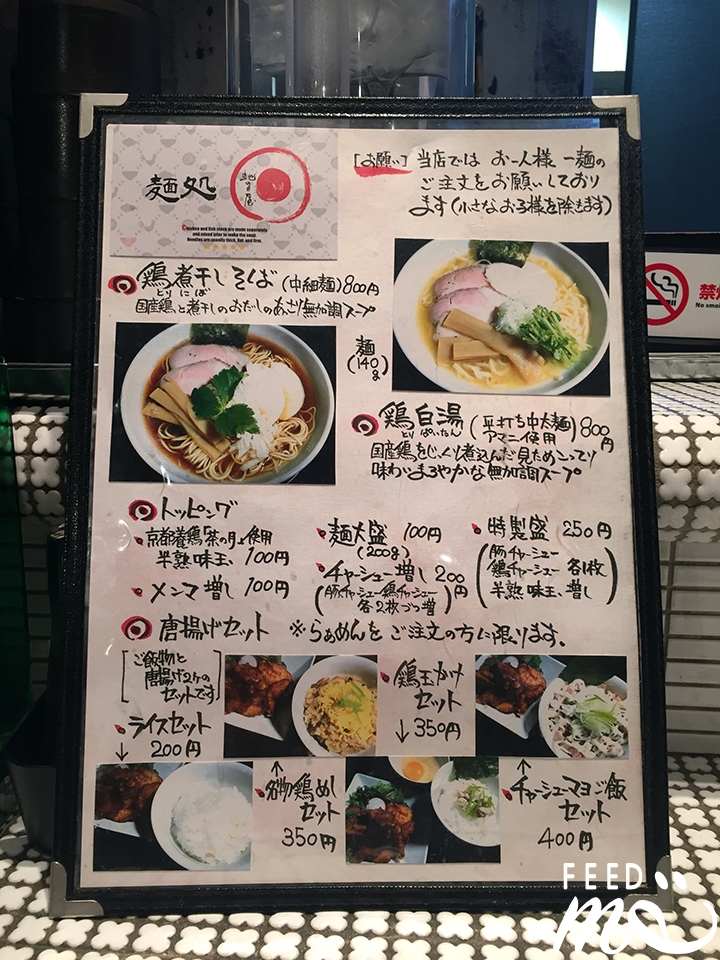 麺処
[お願い] 当店では お一人様 一麺の
ご注文をお願いしており
ます(小さなお子様を除きます)
Chicken and fish stock are made separately
and mixed later to make the soup.
Noodles are usually thick, flat, and firm.
鶏煮干しそば (中細麺) 800円
とりにぼ
国産鶏と煮干しのおだしのあっさり無加調スープ
麺
(140g)
鶏白湯 (平打ち中太麺) 800円
とりぱいたん アマニ使用
国産鶏をじっくり煮込んだ見ためこってり
味わいまろやかな無加調スープ
トッピング
京都養鶏「茶の月」使用
半熟味玉 100円
メンマ増し 100円
麺大盛 100円
(200g)
チャーシュー増し 200円
(豚チャーシュー鶏チャーシュー
各2枚づつ増)
特製盛 250円
(豚チャーシュー
鶏チャーシュー 各1枚
半熟味玉、増し)
唐揚げセット ※らぁめんをご注文の方に限ります。
[ご飯物と
唐揚げ2ケの
セットです]
ライスセット
↓ 200円
鶏玉かけ
セット
↓ 350円
↑
名物鶏めし
セット
350円
↑
チャーシューマヨご飯
セット
400円
禁煙
No smo
FEED
me